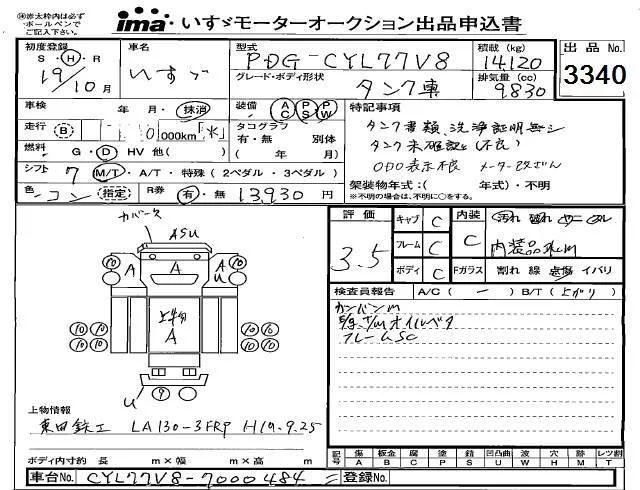 ※赤太枠内は必ず
ボールペンで
ご記入下さい。
ima いすゞモーターオークション出品申込書
初度登録 S・H・R 19/10月
車名 いすゞ
型式 PDG-CYL77V8
積載 (kg) 14120
出品No. 3340
グレード・ボディ形状 タンク車
排気量 (cc) 9830
車検 年 月・抹消
装備 AC PS PW
特記事項
走行 B 000km「水」
タコグラフ 有・無 別体 ( 年 月)
タンク書類、洗浄証明無シ
燃料 G・D HV 他( )
タンク未確認 (不良)
シフト 7 M/T・A/T・特殊 (2ペダル・3ペダル)
ODO表示不良 メーター改ざん
色 コン 指定 R券 有・無 13,930円
架装物年式:( 年式)・不明
※不明の場合は、不明に○をする。
カバース
ASU
評価 3.5
キャブ C
内装 C
フレーム C
内装品
ボディ C
Fガラス 割れ 線 点傷 イバリ
検査員報告 A/C (ー) B/T (上がり)
カンバンM
フレームSC
10 A A A 10
U
上物 A
10 10 10 10
10 10 10 10
U 9
上物情報
東田鉄工 LA130-3FRP H19.9.25
ボディ内寸約 長 m×幅 m×高 m
記号 傷A 板金B 腐C 塗P 錆S 凹凸曲U 波W 穴H 跡M レツ割T
車台No. CYL77V8-7000484 登録No.